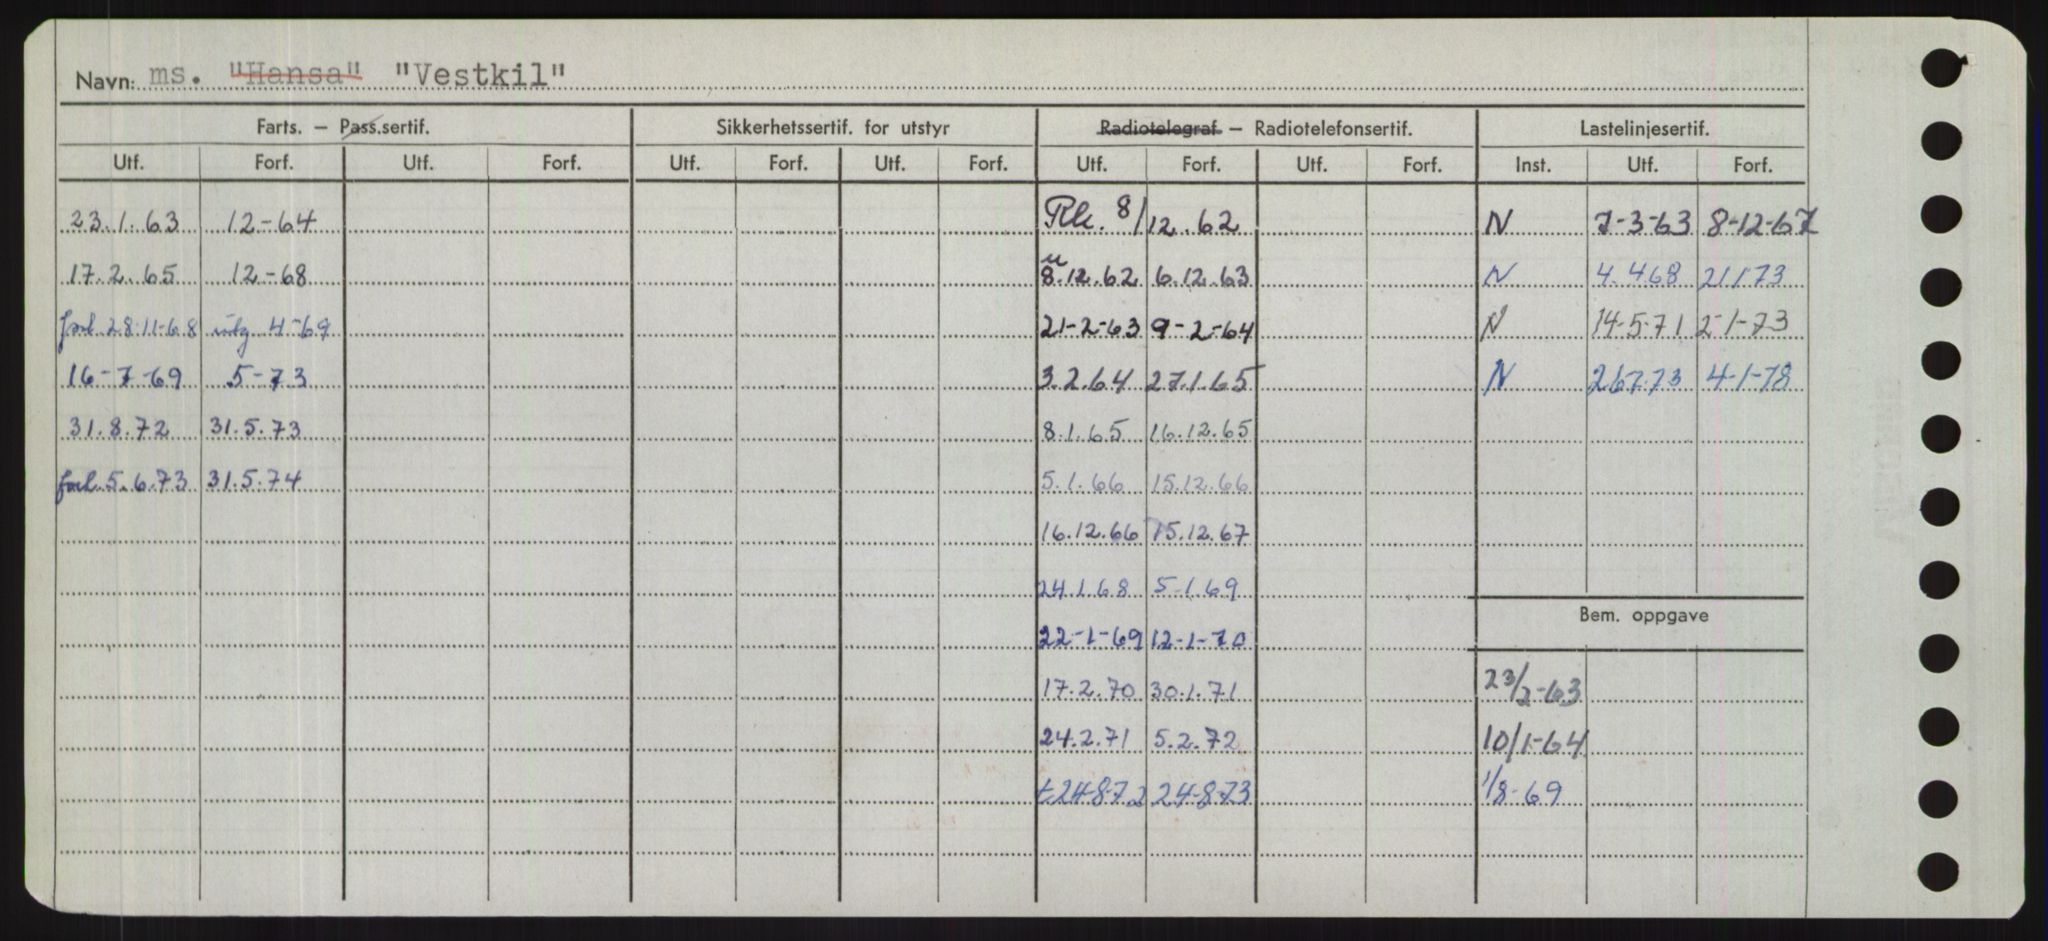 Navn: ms. "Hansa" "Vestkil"
Farts. – Pass.sertif. Sikkerhetssertif. for utstyr Radiotelegraf – Radiotelefonsertif. Lastelinjesertif.
Utf. Forf. Utf. Forf. Utf. Forf. Utf. Forf. Utf. Forf. Utf. Forf. Inst. Utf. Forf.
23.1.63 12-64 Rk. 8/12.62 N 7-3-63 8-12-67
17.2.65 12-68 8.12.62 6.12.63 N 4.4.68 21173
forl 28-11-68 utg 4-69 21-2-63 9-2-64 N 14-5-71 2-1-73
16-7-69 5-73 3.2.64 27.1.65 N 267.73 4-1-78
31.8.72 31.5.73 8.1.65 16.12.65
forl. 5.6.73 31.5.74 5.1.66 15.12.66
16.12.66 15.12.67
24.1.68 5-1.69
Bem. oppgave
22-1-69 12-1-70
17.2.70 30.1.71 23/2-63
24.2.71 5.2.72 10/1-64
t 24-8-72 24-8-73 1/8-69